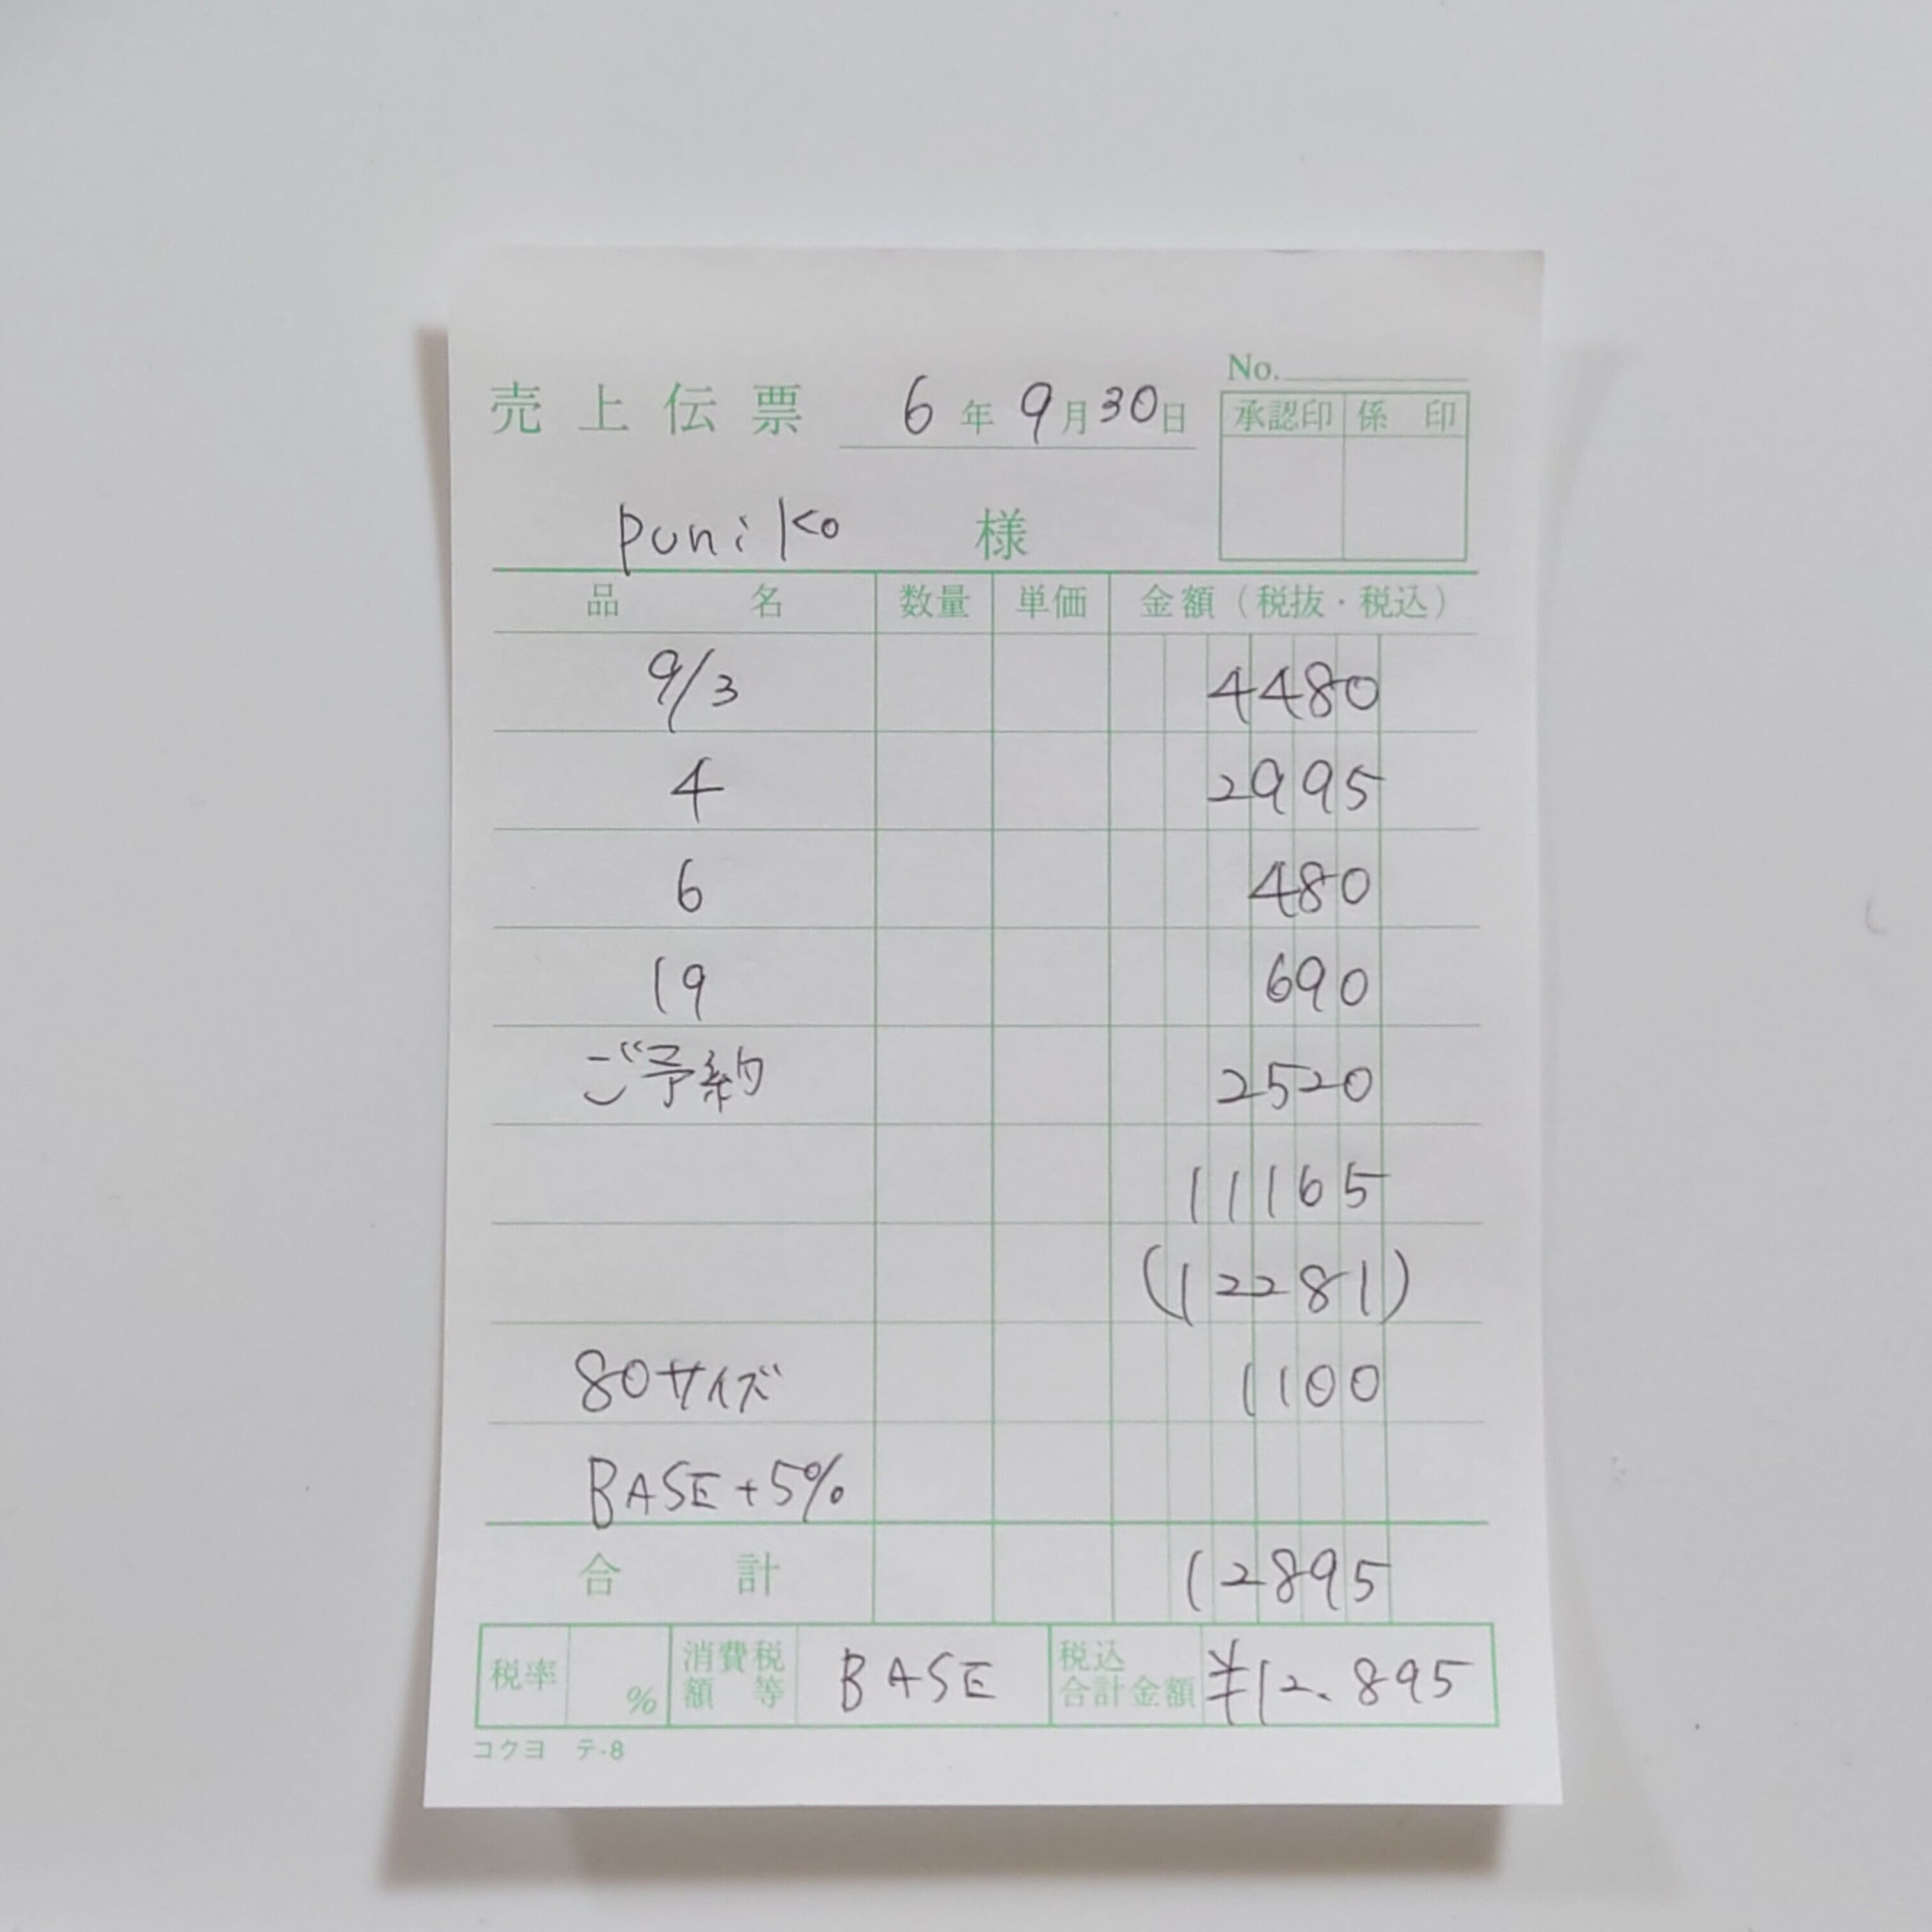 No.
売上伝票 6年9月30日
承認印 係印
puniko 様
品名 数量 単価 金額(税抜・税込)
9/3 4480
4 2995
6 480
19 690
ご予約 2520
11165
(12281)
80サイズ 1100
BASE+5%
合計 12895
税率 % 消費税額等 BASE 税込合計金額 ¥12.895
コクヨ テ-8